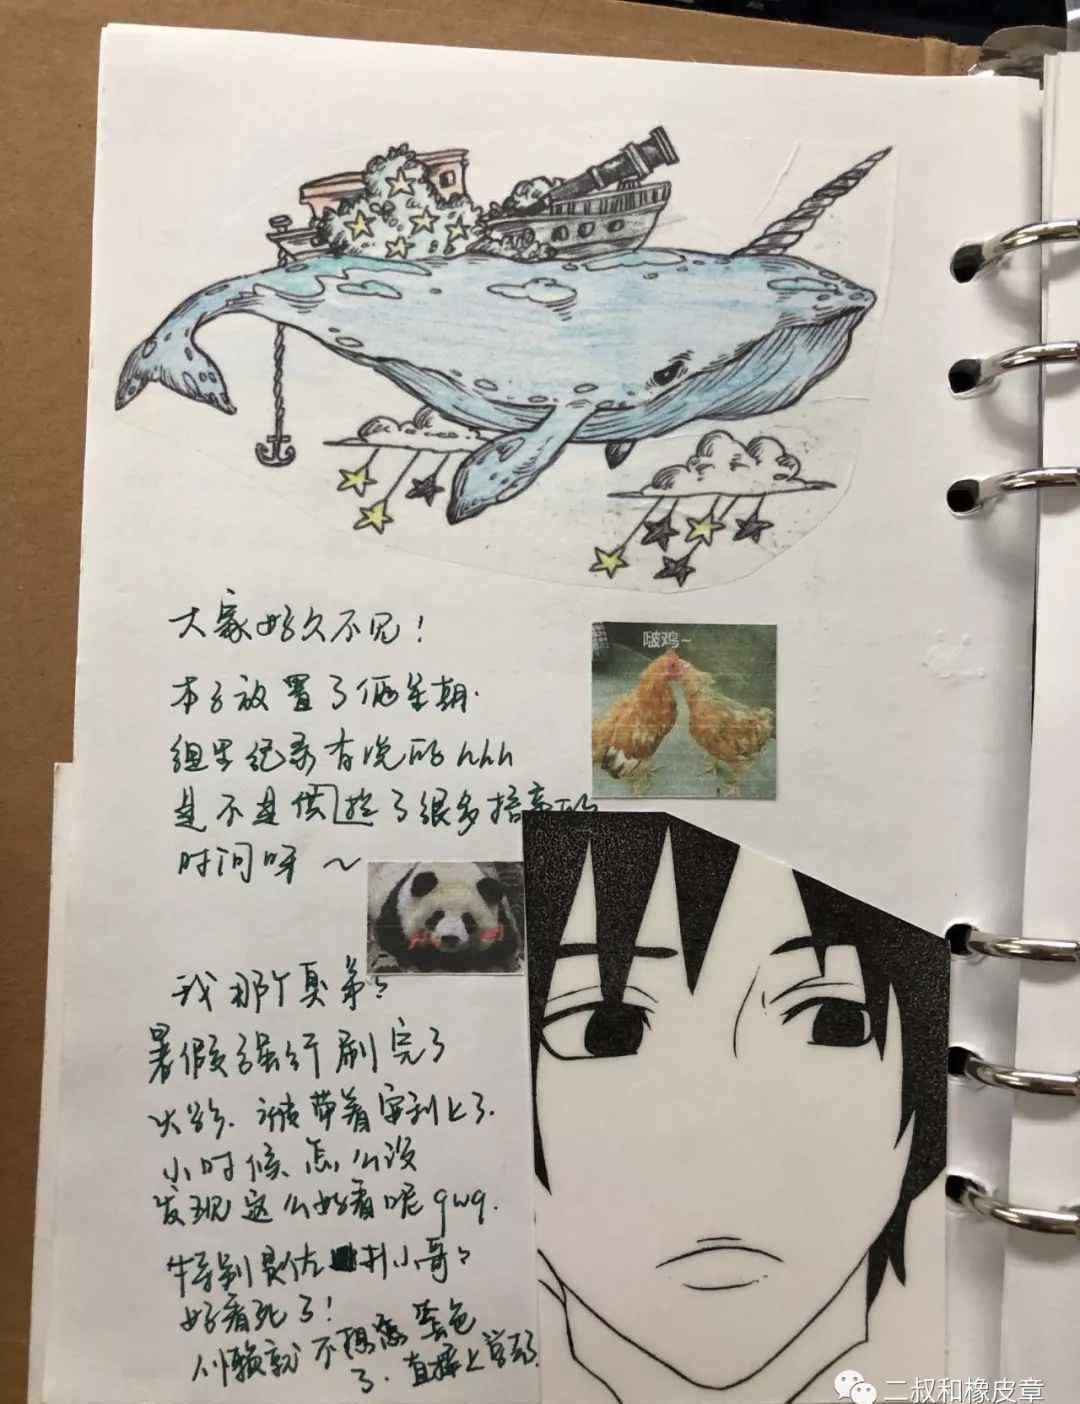 大家好久不见！
啵鸡~
本子放置了俩星期.
组里纪录有晚的hhh
是不是供挖了很多搭
时间呀～
我那个真弟弟
暑假强行刷完了
火影. 被带着安利上了.
小时候怎么没
发现这么好看呢qwq.
特别是佐 小哥哥
好看死了！
懒就不想 蓝色
了. 直接上
二叔和橡皮章